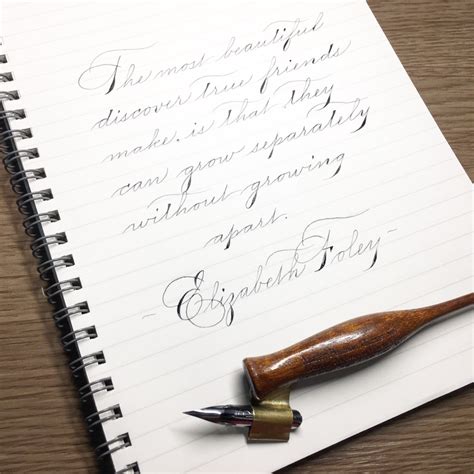 The most beautiful
discover true friends
make. is that they
can grow separately
without growing
apart.
- Elizabeth Foley -